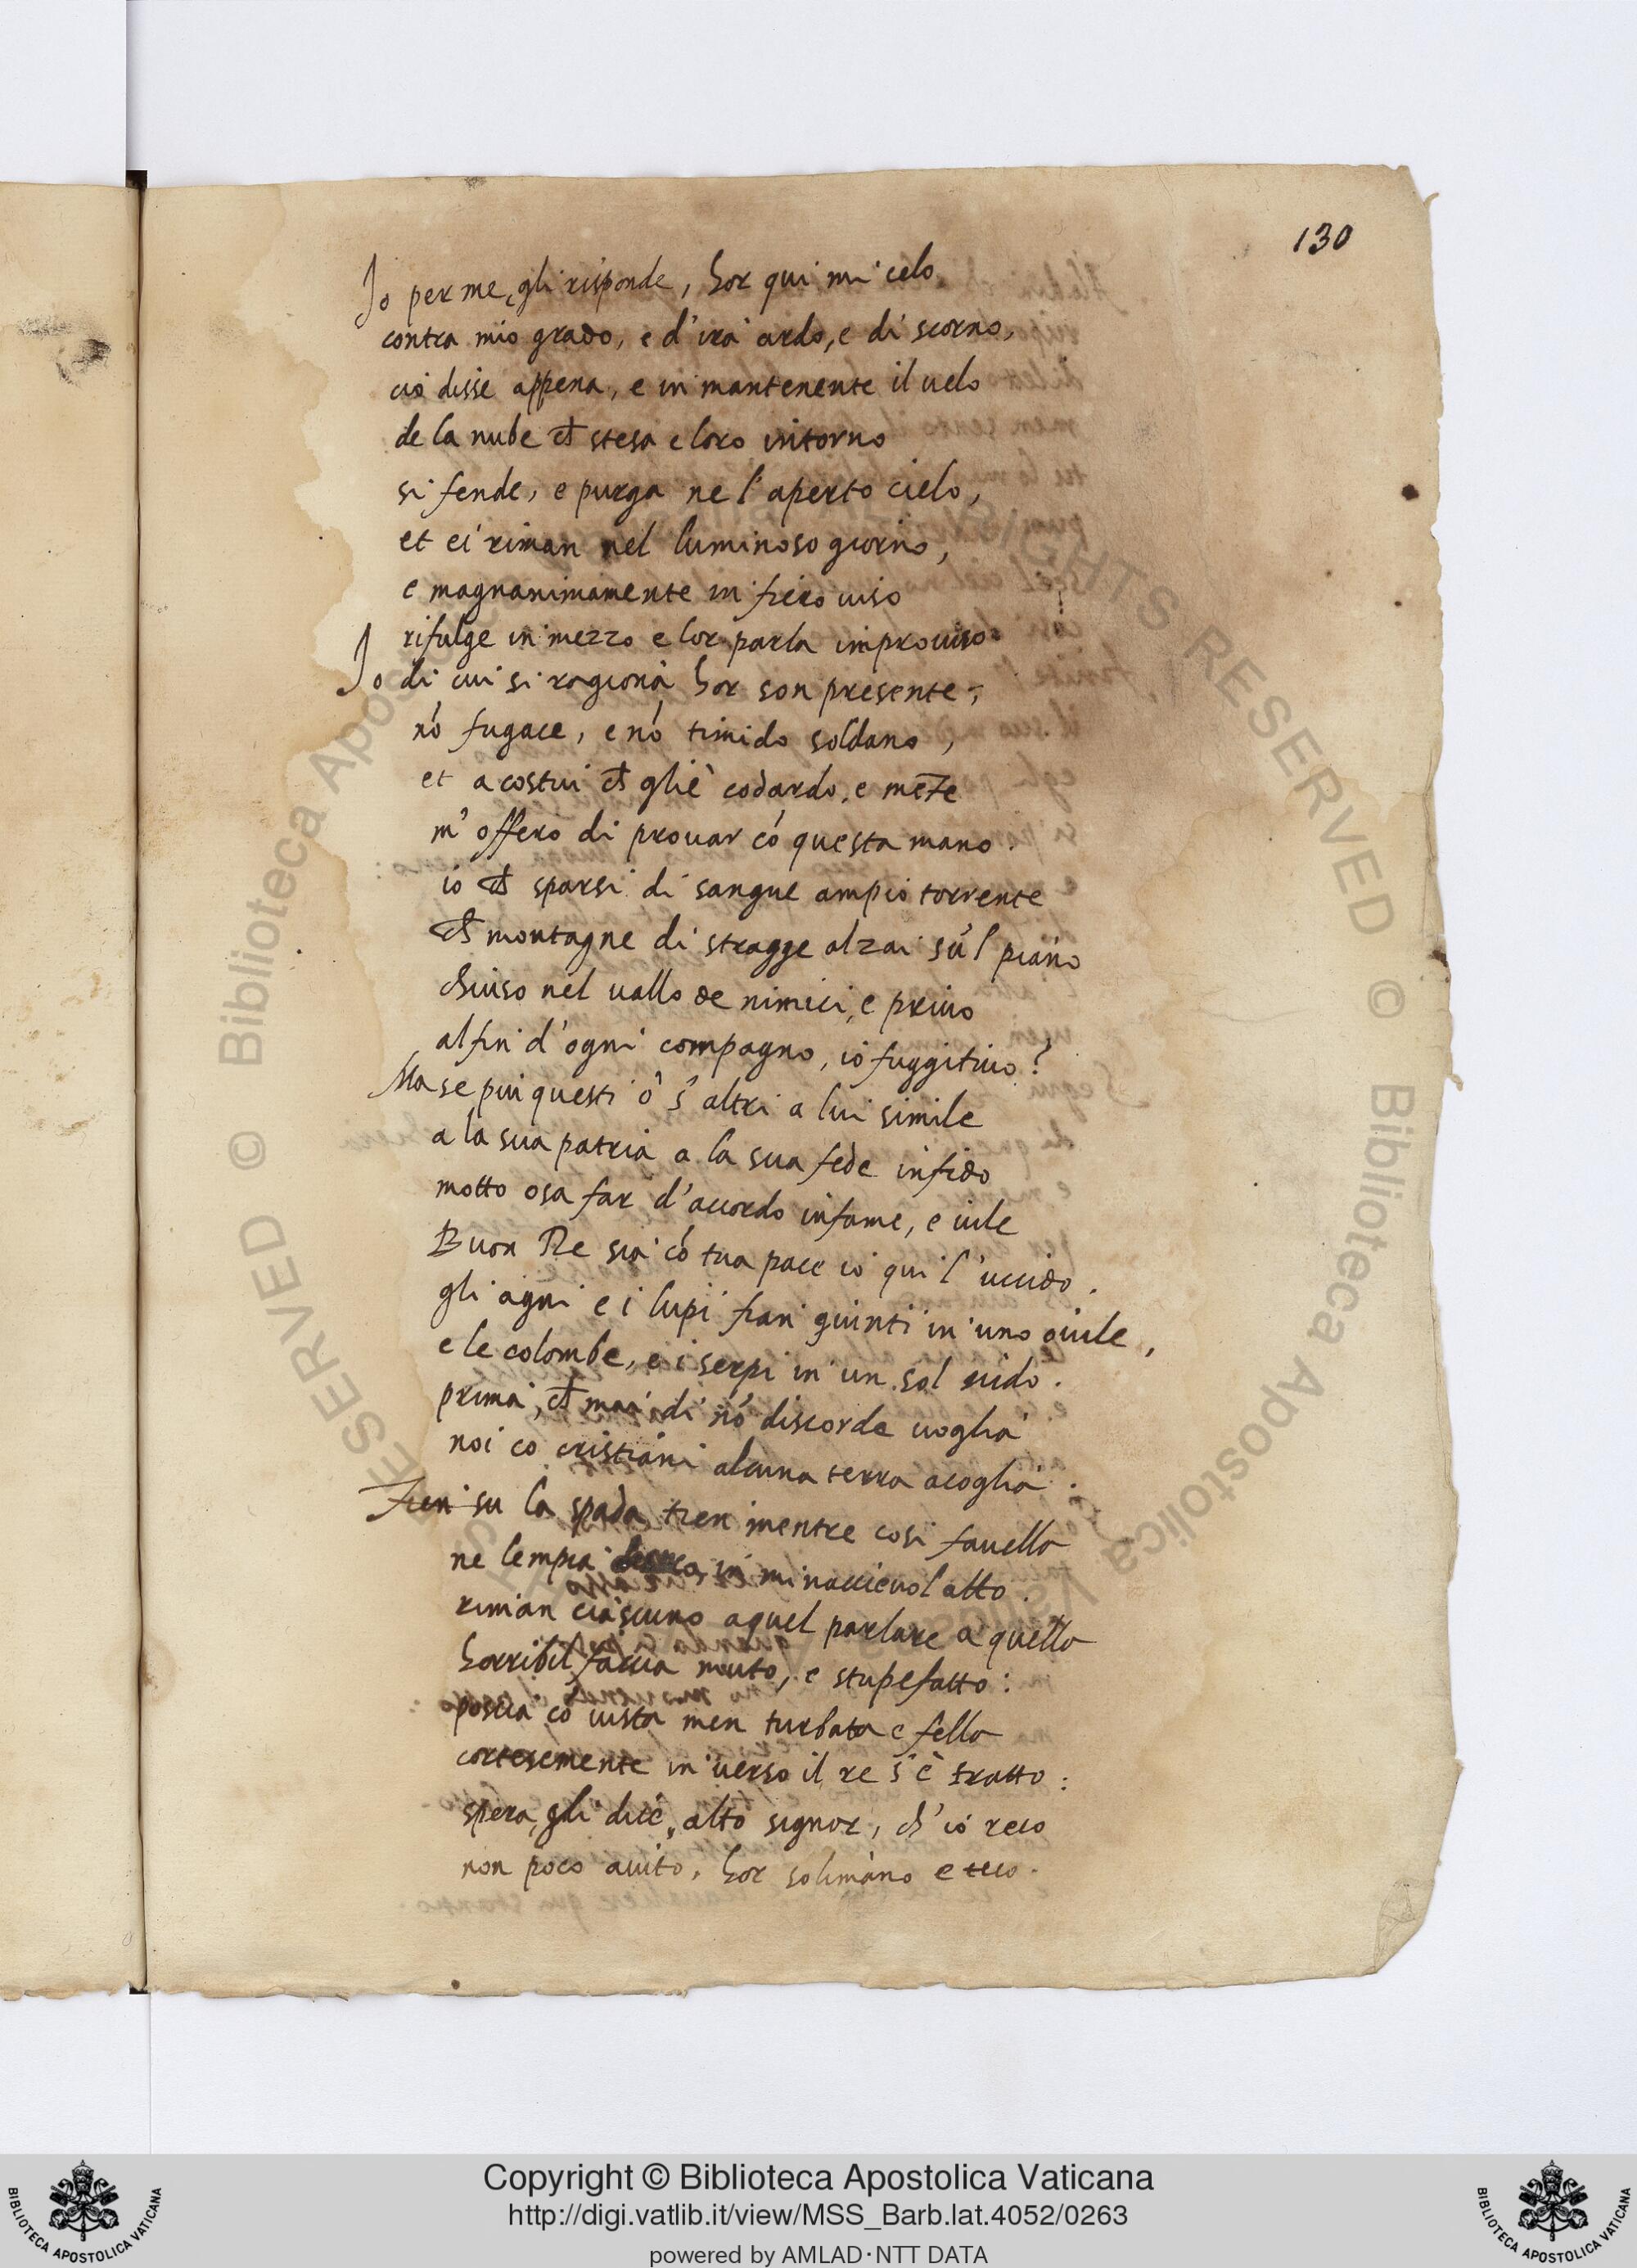 130
Io per me, gli risponde, hor qui mi celo
contra mio grado, e d'ira ardo, e di scorno,
ciò disse appena, e in mantenente il uelo
de la nube ch̃ stesa e loro intorno
si fende, e purga ne l'aperto cielo,
et ei riman nel luminoso giorno,
e magnanimamente in fiero uiso
rifulge in mezzo e lor parla improuiso.
Io di cui si ragiona hor son presente,
nó fugace, e nó timido soldano,
et a costui ch̃ gliè codardo, e mẽte
m'offero di prouar có questa mano.
io ch̃ sparsi di sangue ampio torrente
ch̃ montagne di stragge alzai sú'l piano
chiuso nel uallo de nimici, e priuo
alfin d'ogni compagno, io fuggitiuo?
Ma se piu questi ò s'altri a lui simile
a la sua patria a la sua fede infido
motto osa far d'accordo infame, e uile
Buon Re sia có tua pace io qui l'uccido.
gli agni e i lupi fian giunti in uno ouile,
e le colombe, e i serpi in un sol nido.
prima, ch̃ mai di nó discorde uoglia
noi co cristiani alcuna terra acoglia.
Tien su la spada tien mentre cosi fauella
ne l'empia destra, in minacceuol atto.
riman ciascuno a quel parlare a quella
horribil faccia muto, e stupefatto:
poscia có uista men turbata e fella
cortesemente in uerso il re s'è tratto:
spera, gli dice, alto signor, ch'io reco
non poco aiuto, hor solimano e teco.
Copyright © Biblioteca Apostolica Vaticana
http://digi.vatlib.it/view/MSS_Barb.lat.4052/0263
powered by AMLAD·NTT DATA